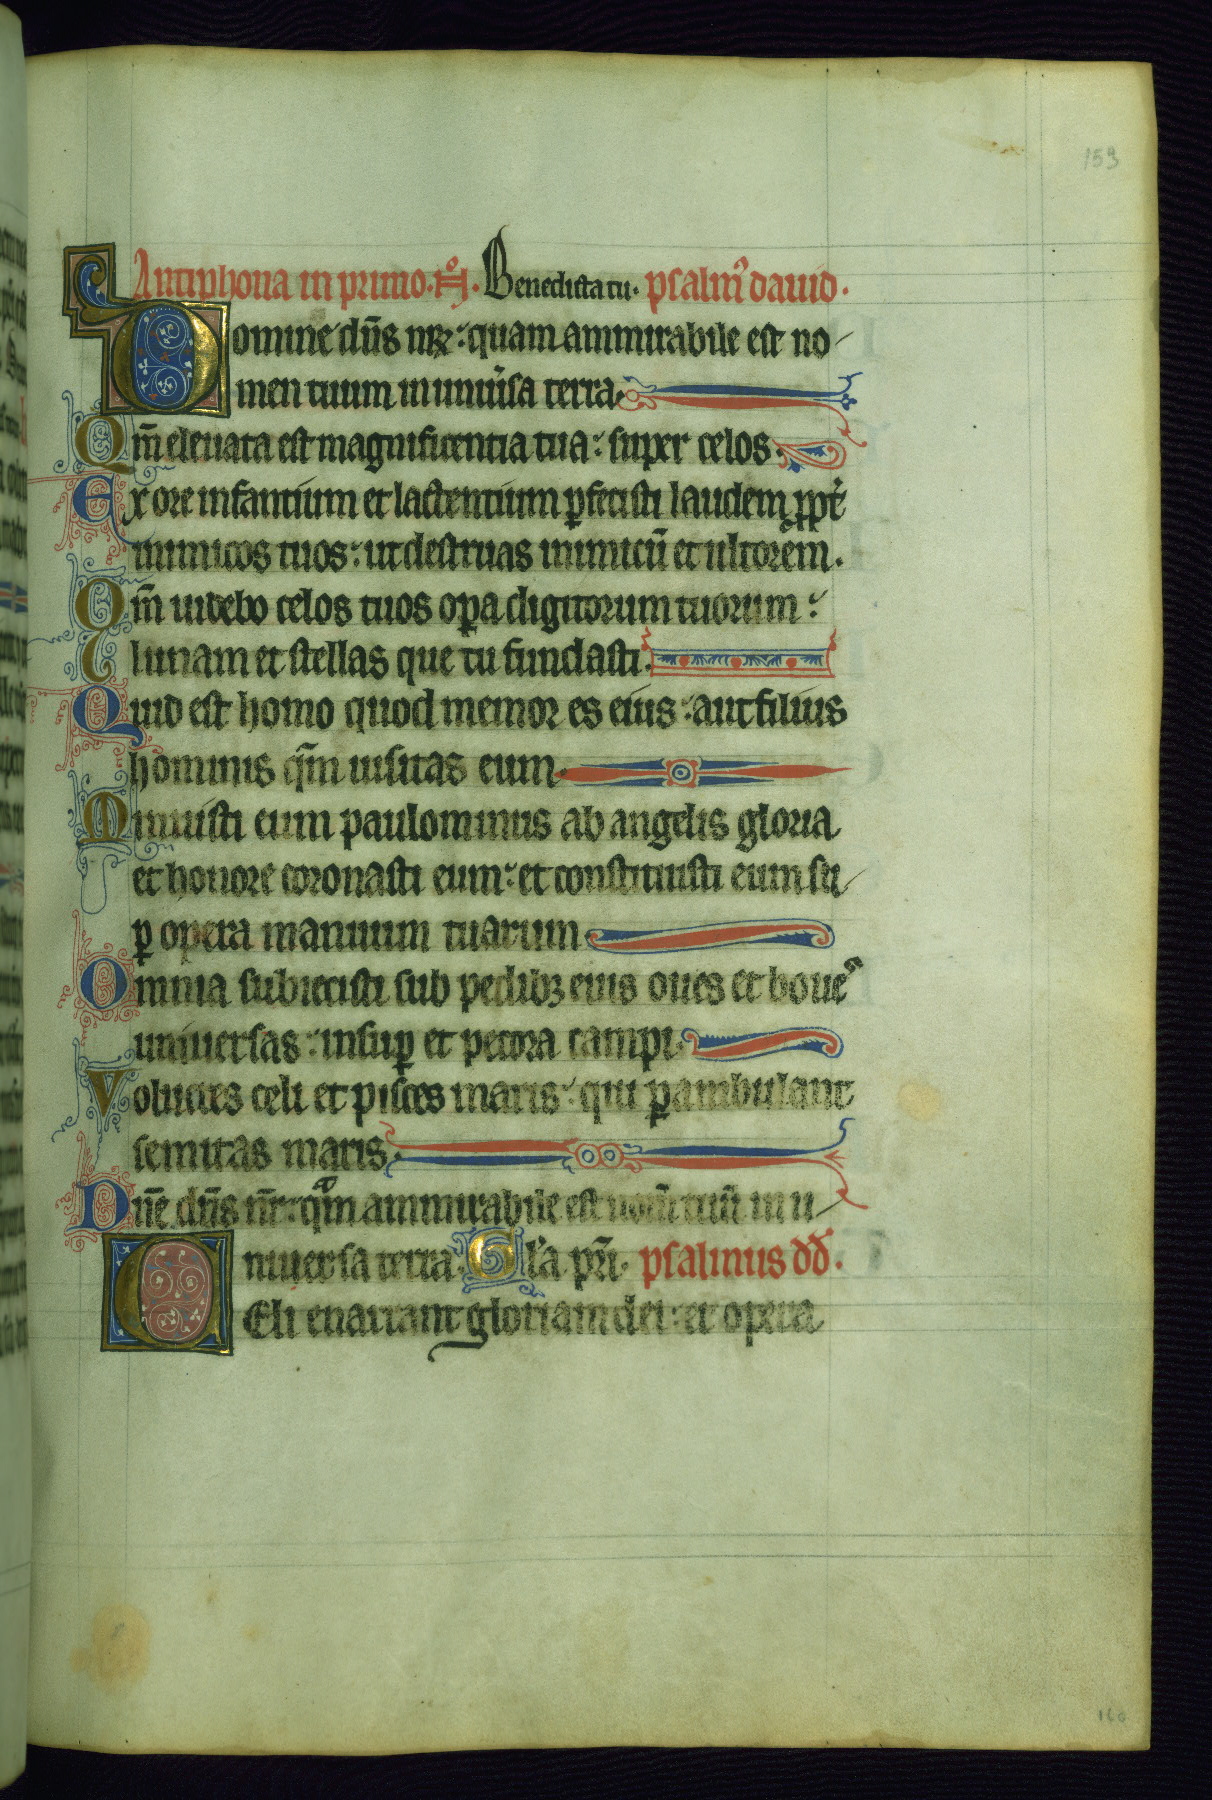 159
Antiphona in primo. nͦ. Benedicta tu. psalmꝰ dauid.
Domine dn̄s nr̄: quam ammirabile est no
men tuum in uniu̾sa terra.
Qm̄ eleuata est magnificentia tua: super celos.
Ex ore infantium et lactentium ꝑfecisti laudem ꝓpt̾
inimicos tuos: ut destruas inimicū et ultorem.
Qm̄ uidebo celos tuos oꝑa digitorum tuorum:
lunam et stellas que tu fundasti.
Quid est homo quod memor es eius: aut filius
hominis qm̄ uisitas eum.
Minuisti eum paulominus ab angelis gloria
et honore coronasti eum: et constituisti eum su
ꝑ opera manuum tuarum.
Omnia subiecisti sub pedibꝫ eius oues et boues
uniuersas: insuꝑ et pecora campi.
Volucres celi et pisces maris: qui ꝑambulant
semitas maris.
Dn̄e dn̄s nr̄: qͣm ammirabile est nom̄ tuū in u
niuersa terra. Gl̄a pr̄i. psalmus dd̄.
CEli enarrant gloriam dei: et opera
160